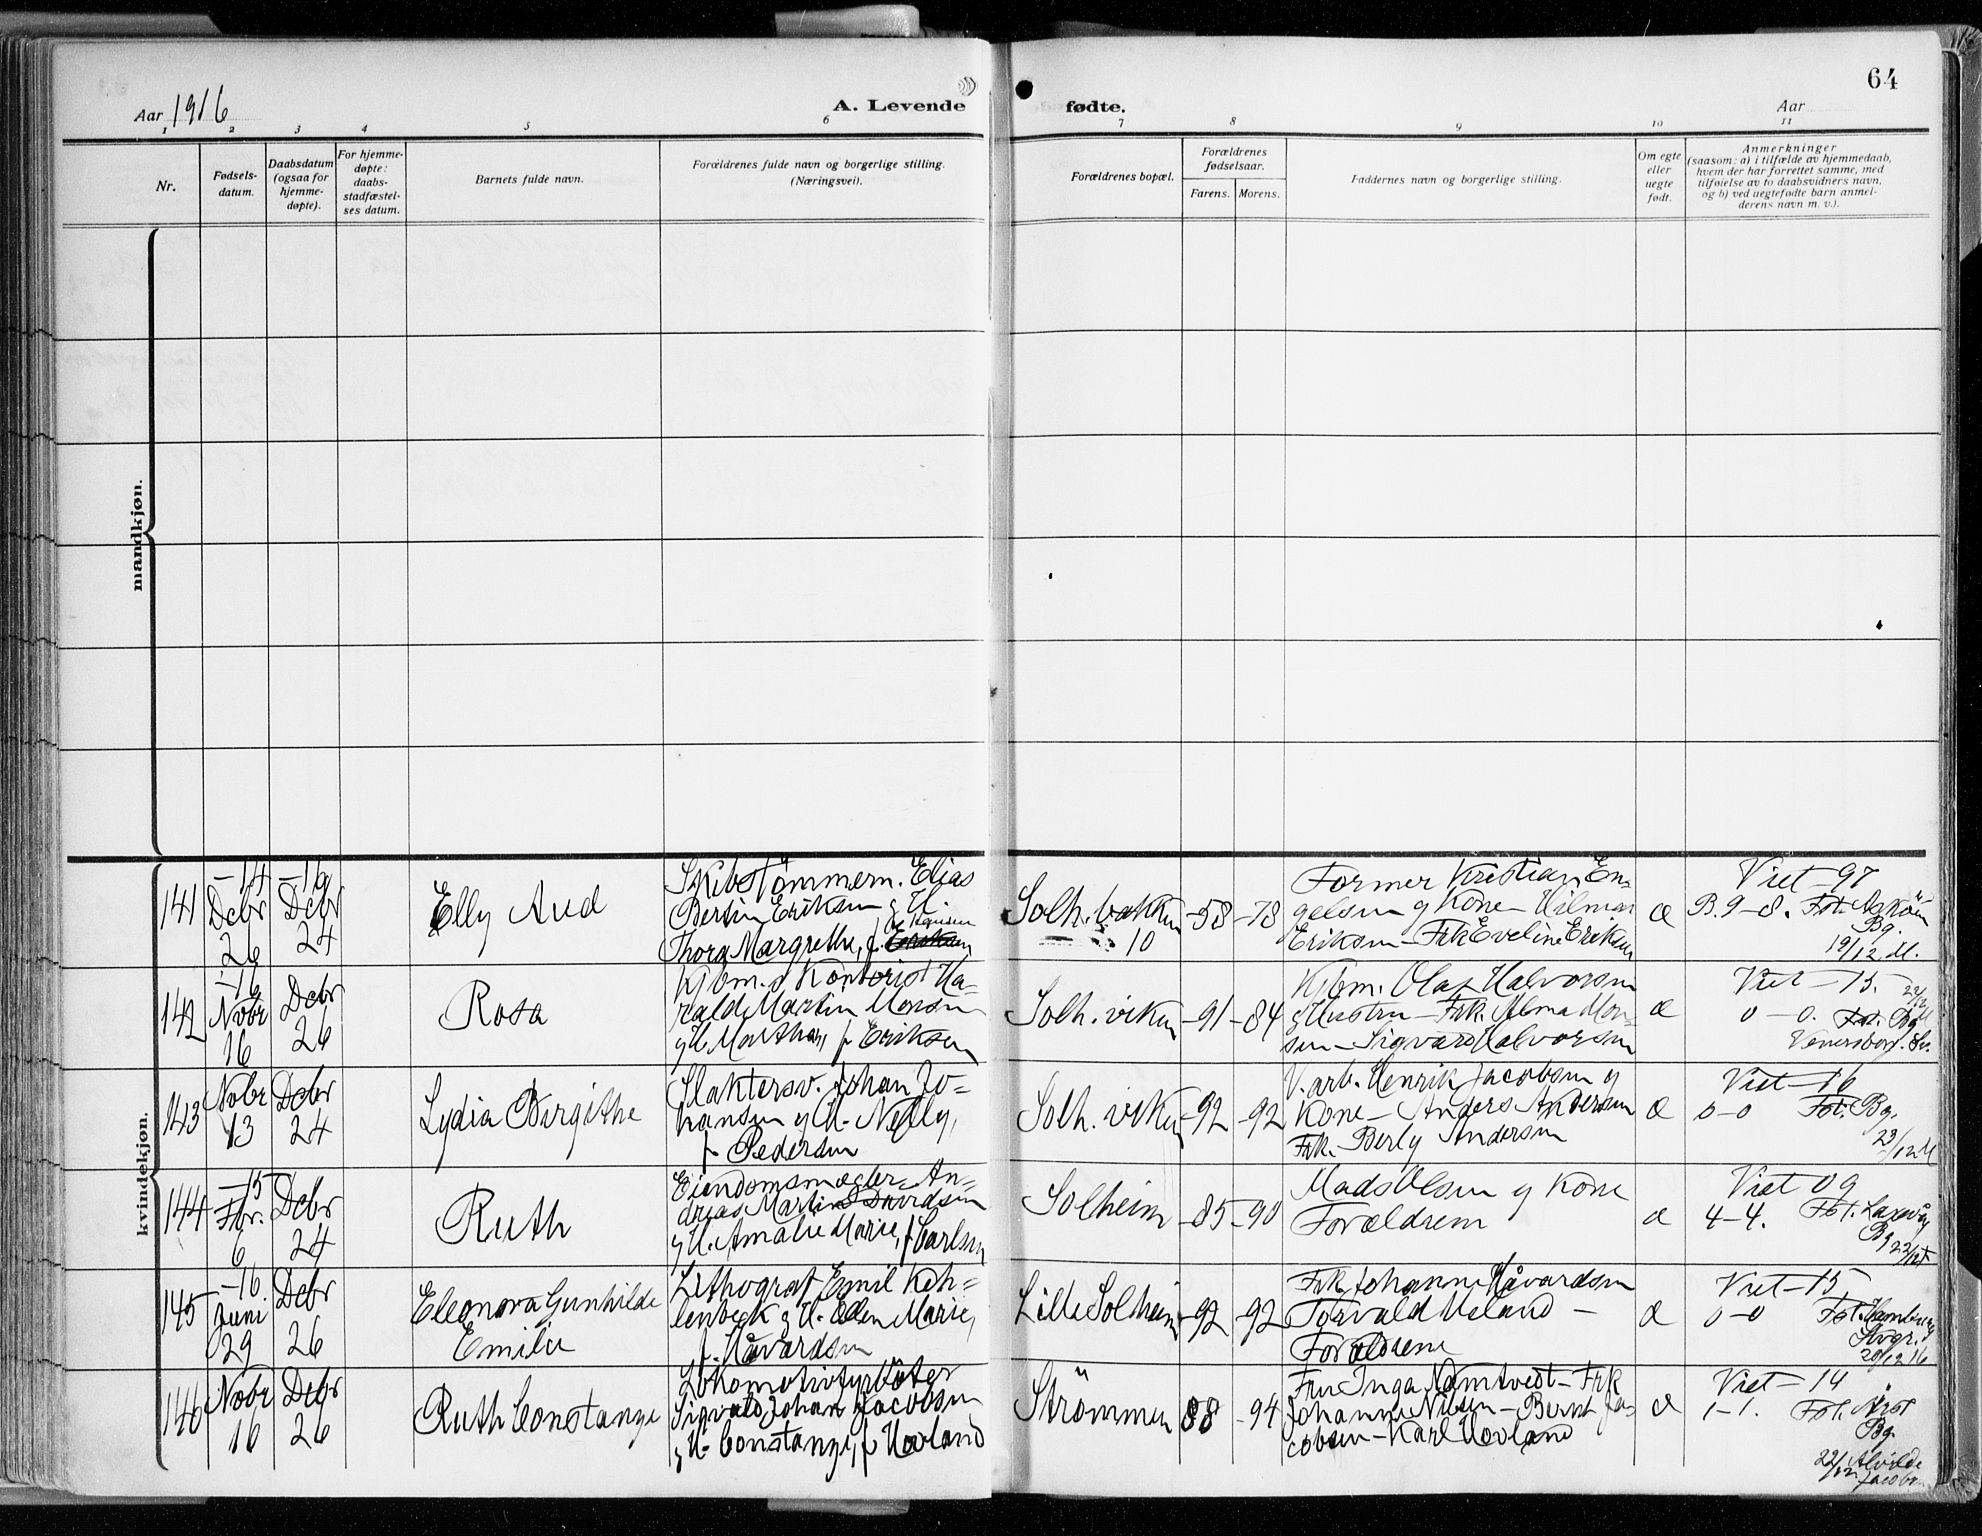 64
Aar 1916
A. Levende
fødte.
Aar
1 2 3 4 5 6 7 8 9 10 11
Nr.
Fødsels-
datum.
Daabsdatum
(ogsaa for
hjemme-
døpte).
For hjemme-
døpte:
daabs-
stadfæstel-
ses datum.
Barnets fulde navn.
Forældrenes fulde navn og borgerlige stilling.
(Næringsvei).
Forældrenes bopæl.
Forældrenes
fødselsaar.
Farens. Morens.
Faddernes navn og borgerlige stilling.
Om egte
eller
uegte
født.
Anmerkninger
(saasom: a) i tilfælde av hjemmedaab,
hvem der har forrettet samme, med
tilføielse av to daabsvidners navn,
og b) ved uegtefødte barn anmel-
derens navn m. v.).
mandkjøn.
kvindekjøn.
141
-14
Debr
26
-16
Debr
24
Elly Aud
Skibstømmerm. Elias
Bertin Eriksen g H.
Thora Margrethe, f.
Hansen
Solh.bakken
10
-58 -78
Former Kristian En-
gelsen g Kone - Hilmar
Eriksen - Frk Eveline Eriksen
æ
Viet - 97
B. 9-8. Fot. Askøen
Bg.
19/12 M.
142
-16
Nobr
16
Debr
26
Rosa
Kjbm. s Kontorist Ha-
rald Martin Monsen
g H. Martha, f Eriksen
Solh. viken
-91 -84
Kjbm. Olaf Halvorsen
g Hustru - Frk. Alma Mon-
sen - Sigvard Halvorsen
æ
Viet - 15.
22/12
0-0. Fot. Bg
Venersborg. Sv.
143
Nobr
13
Debr
24
Lydia Birgithe
Slaktersv. Johan Jo-
hansen g H. Nelly,
f Pedersen
Solh. viken
-92 -92
V. arb. Henrik Jacobsen g
Kone - Anders Andersen
Frk. Berly Andersen
æ
Viet - 16
0-0 Fot. Bg.
23/12 M
144
-15
Fbr.
6
Debr
24
Ruth
Eiendomsmægler An-
dreas Martin Davidsen
g H. Amalie Marie, f Carlsen
Solheim
-85 -90
Mads Olsen g Kone
Forældrene
æ
Viet 09
4-4. Fot. Laxevåg
Bg 22/12
145
-16.
Juni
29
Debr
26
Eleonora Gunhilde
Emilie
Lithograf Emil Keh-
lenbeck g H. Ellen Marie,
f. Håvardsen
Lille Solheim
-92 -92
Frk. Johanne Håvardsen
Torvald Meland -
Forældrene
æ
Viet - 15
0-0 Fot. Hamburg
Stvgr.
20/12 16
146
Nobr
16
Debr
26
Ruth Constanze
Lokomotivfyrbøter
Sigvald Johan Jacobsen
g H. Constanze, f Hovland
Strømmen
88 -94
Fru Inga Namtvedt - Frk
Johanne Nilsen - Bernt Ja-
cobsen - Karl Hovland
æ
Viet - 14
1-1. Fot. Årst
Bg.
22/12. Alvilde
Jacobsen